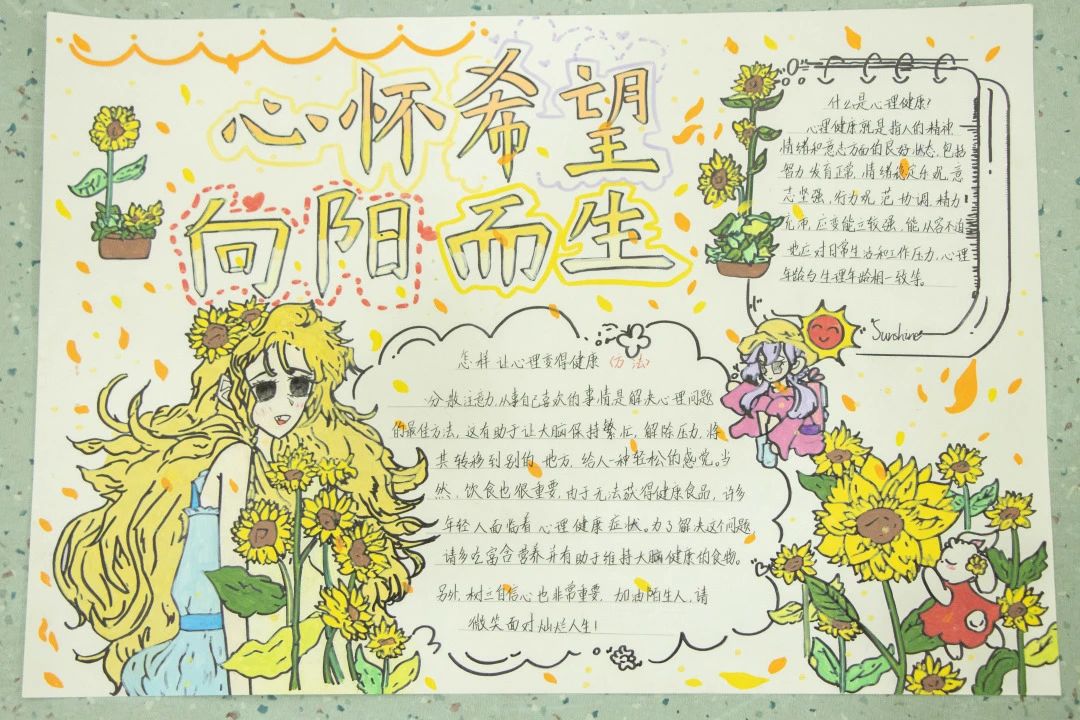 心怀希望
向阳而生
什么是心理健康?
心理健康就是指人的精神
情绪和意志方面的良好状态,包括
智力发育正常,情绪稳定乐观,意
志坚强,行为规范协调,精力
充沛,应变能力较强,能从容不迫
地应对日常生活和工作压力,心理
年龄与生理年龄相一致等。
Sunshine
怎样让心理变得健康(方法)
分散注意力,从事自己喜欢的事情是解决心理问题
的最佳方法,这有助于让大脑保持繁忙,解除压力,将
其转移到别的地方,给人一种轻松的感觉。当
然,饮食也很重要,由于无法获得健康食品,许多
年轻人面临着心理健康症状。为了解决这个问题
请多吃富含营养并有助于维持大脑健康的食物。
另外,树立自信心也非常重要,加油陌生人,请
微笑面对灿烂人生!